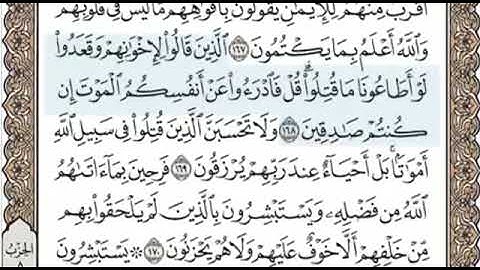 أَقْرَبُ مِنْهُمْ لِلْإِيمَٰنِ يَقُولُونَ بِأَفْوَٰهِهِم مَّا لَيْسَ فِى قُلُوبِهِمْ
وَٱللَّهُ أَعْلَمُ بِمَا يَكْتُمُونَ ١٦٧ ٱلَّذِينَ قَالُوا۟ لِإِخْوَٰنِهِمْ وَقَعَدُوا۟
لَوْ أَطَاعُونَا مَا قُتِلُوا۟ ۗ قُلْ فَٱدْرَءُوا۟ عَنْ أَنفُسِكُمُ ٱلْمَوْتَ إِن
كُنتُمْ صَٰدِقِينَ ١٦٨ وَلَا تَحْسَبَنَّ ٱلَّذِينَ قُتِلُوا۟ فِى سَبِيلِ ٱللَّهِ
أَمْوَٰتًۢا ۚ بَلْ أَحْيَآءٌ عِندَ رَبِّهِمْ يُرْزَقُونَ ١٦٩ فَرِحِينَ بِمَآ ءَاتَىٰهُمُ
ٱللَّهُ مِن فَضْلِهِۦ وَيَسْتَبْشِرُونَ بِٱلَّذِينَ لَمْ يَلْحَقُوا۟ بِهِم
مِّنْ خَلْفِهِمْ أَلَّا خَوْفٌ عَلَيْهِمْ وَلَا هُمْ يَحْزَنُونَ ١٧٠ ۞ يَسْتَبْشِرُونَ
الحزب
٨